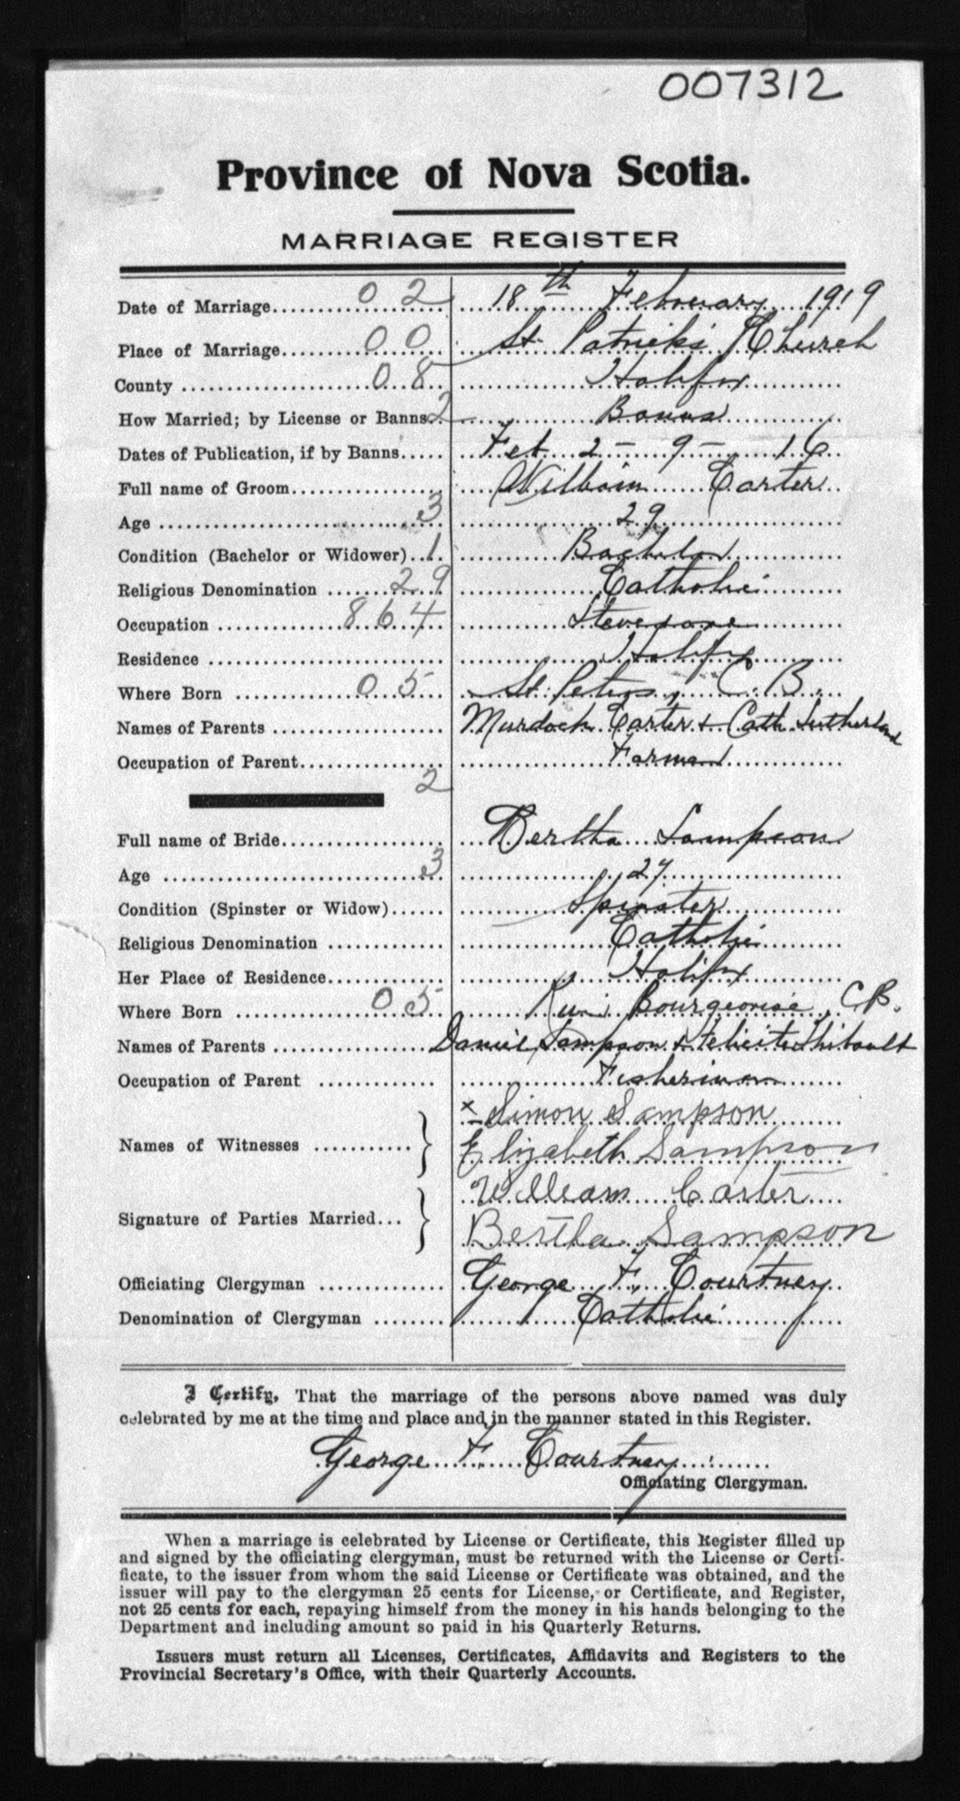 007312
Province of Nova Scotia.
MARRIAGE REGISTER
Date of Marriage 02 18th February 1919
Place of Marriage 00 St. Patrick's Church
County 08 Halifax
How Married; by License or Banns 2 Banns
Dates of Publication, if by Banns Feb 2 - 9 - 16
Full name of Groom William Carter
Age 3 29
Condition (Bachelor or Widower) 1 Bachelor
Religious Denomination 29 Catholic
Occupation 864 Stevedore
Residence Halifax
Where Born 05 St. Peters, C. B.
Names of Parents Murdoch Carter & Cath. Sutherland
Occupation of Parent Farmer
2
Full name of Bride Bertha Sampson
Age 3 27
Condition (Spinster or Widow) Spinster
Religious Denomination Catholic
Her Place of Residence Halifax
Where Born 05 Bourgeoise, C.B.
Names of Parents Daniel Sampson & Felicite Thibault
Occupation of Parent Fisherman
x Simon Sampson
Names of Witnesses } Elizabeth Sampson
William Carter
Signature of Parties Married } Bertha Sampson
Officiating Clergyman George F. Courtney
Denomination of Clergyman Catholic
I Certify, That the marriage of the persons above named was duly
celebrated by me at the time and place and in the manner stated in this Register.
George F. Courtney
Officiating Clergyman.
When a marriage is celebrated by License or Certificate, this Register filled up
and signed by the officiating clergyman, must be returned with the License or Certi-
ficate, to the issuer from whom the said License or Certificate was obtained, and the
issuer will pay to the clergyman 25 cents for License, or Certificate, and Register,
not 25 cents for each, repaying himself from the money in his hands belonging to the
Department and including amount so paid in his Quarterly Returns.
Issuers must return all Licenses, Certificates, Affidavits and Registers to the
Provincial Secretary's Office, with their Quarterly Accounts.